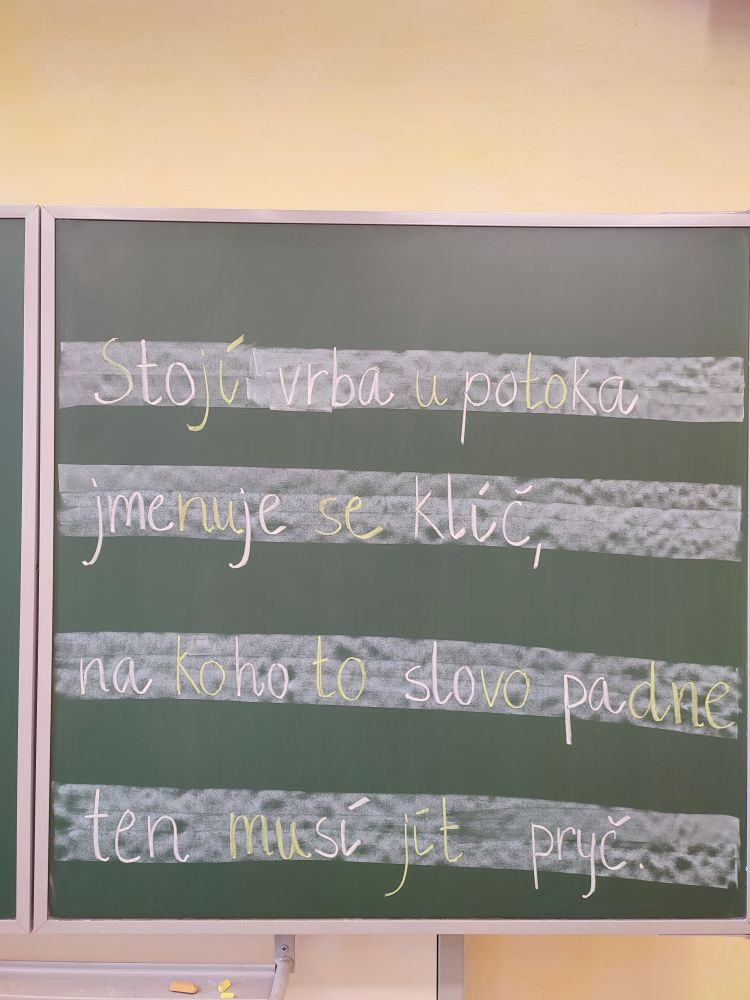 Stojí vrba u potoka
jmenuje se klíč,
na koho to slovo padne
ten musí jít pryč.